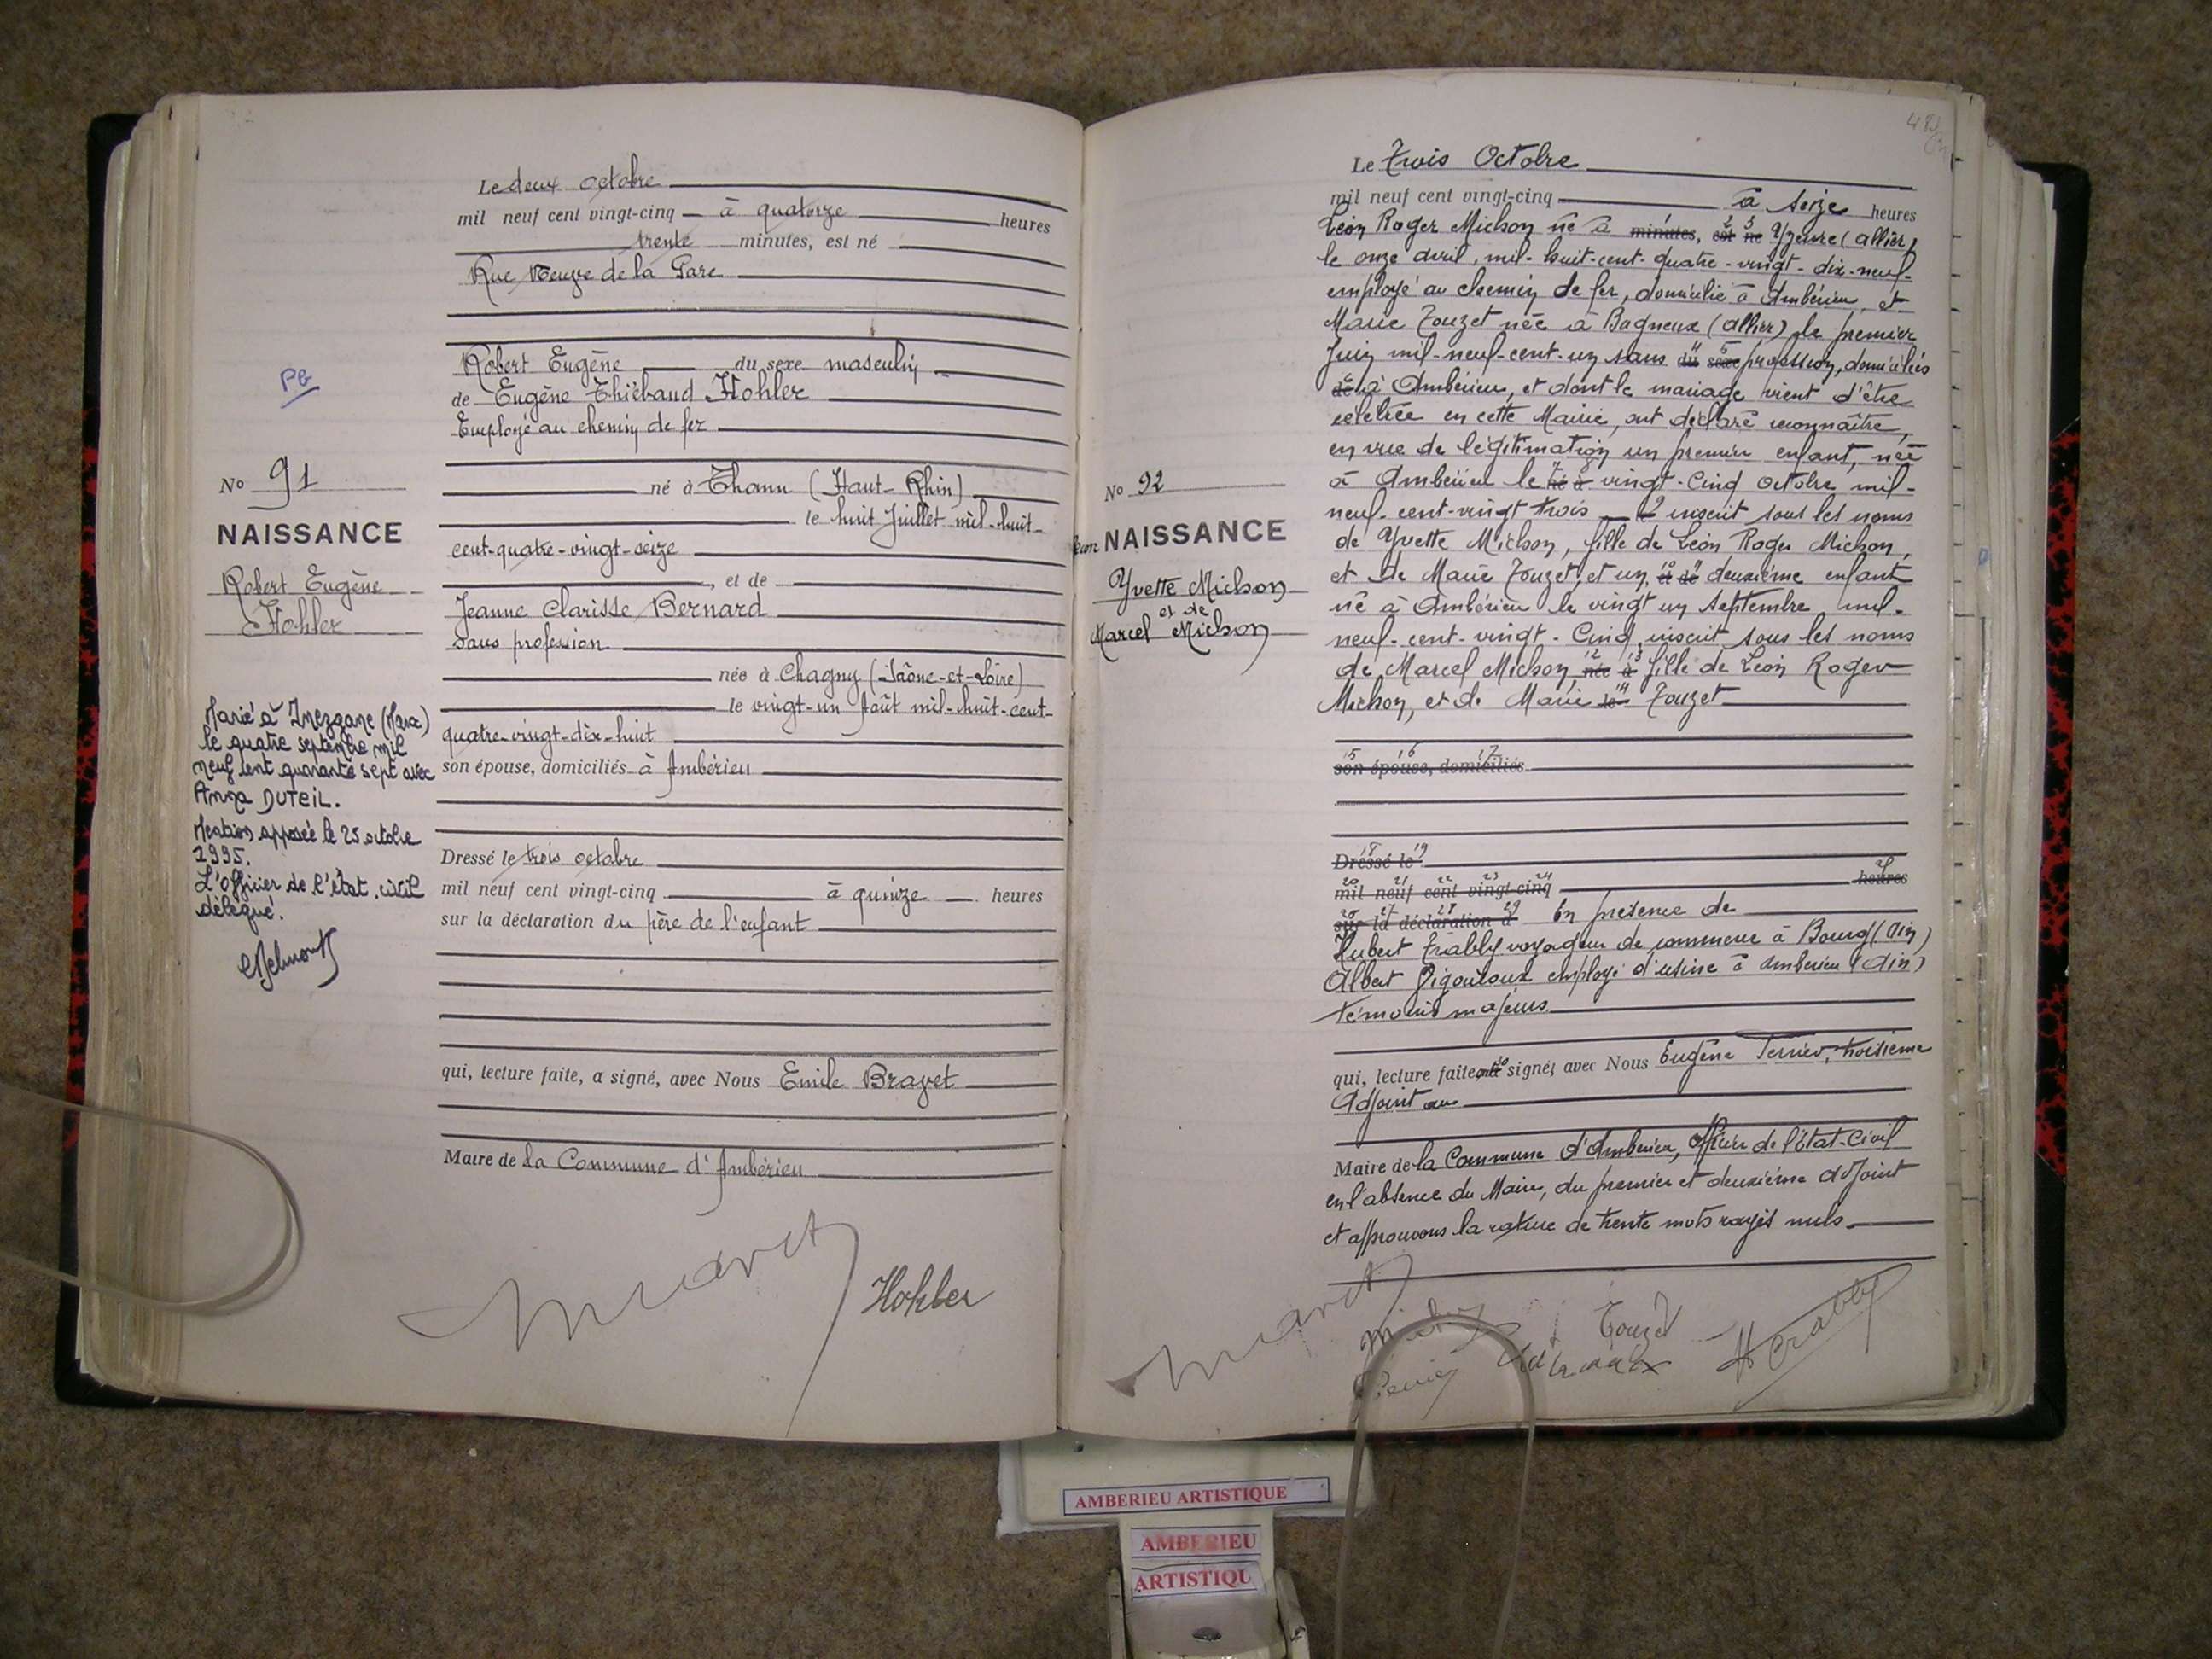 Le deux octobre
mil neuf cent vingt-cinq à quatorze heures
trente minutes, est né
Rue Neuve de la Gare
Robert Eugène du sexe masculin
de Eugène Thiébaud Hohler
Employé au chemin de fer
né à Thann (Haut-Rhin)
le huit Juillet mil-huit-
cent-quatre-vingt-seize
, et de
Jeanne Clarisse Bernard
sans profession
née à Chagny (Saône-et-Loire)
le vingt-un Août mil-huit-cent-
quatre-vingt-dix-huit
son épouse, domiciliés à Ambérieu
Dressé le trois octobre
mil neuf cent vingt-cinq à quinze heures
sur la déclaration du père de l'enfant
qui, lecture faite, a signé, avec Nous Emile Bravet
Maire de la Commune d'Ambérieu
Hohler
PG
No 91
NAISSANCE
Robert Eugène
Hohler
Marié à Inezgane (Maroc)
le quatre septembre mil
neuf cent quarante sept avec
Anna DUTEIL.
Mention apposée le 25 octobre
1995.
L'officier de l'état civil
délégué.
Le Trois Octobre
mil neuf cent vingt-cinq à seize heures
Léon Roger Michon né à minutes, 2 est 3 né Yzeure (Allier)
le onze avril, mil-huit-cent-quatre-vingt-dix-neuf-
employé au chemin de fer, domicilié à Ambérieu, et
Marie Touzet née à Bagneux (Allier) le premier
Juin mil-neuf-cent-un sans 4 du 5 sexe profession, domiciliés
6 de à Ambérieu, et dont le mariage vient d'être
célébrée en cette Mairie, ont déclaré reconnaître,
en vue de légitimation un premier enfant, née
à Ambérieu le 7 né 8 à vingt-Cinq octobre mil-
neuf-cent-vingt trois 9 inscrit sous les noms
de Yvette Michon, fille de Léon Roger Michon,
et de Marie Touzet, et un, 10 et 11 de deuxième enfant
né à Ambérieu le vingt un Septembre mil-
neuf-cent-vingt-Cinq inscrit sous les noms
de Marcel Michon, 12 née 13 à fille de Léon Roger
Michon, et de Marie 14 le Touzet
15 16 17
son épouse, domiciliés
18 19
Dressé le
20 21 22 23 24
mil neuf cent vingt-cinq heures
26 27 28 29
sur la déclaration d En présence de
Hubert Crably voyageur de commerce à Bourg (Ain)
Albert employé d'usine à Ambérieu (Ain)
témoins majeurs
qui, lecture faite, ont signé, avec Nous Eugène Terrier, troisième
Adjoint au
Maire de la Commune d'Ambérieu, Officier de l'État-Civil
en l'absence du Maire, du premier et deuxième adjoint
et approuvons la rature de trente mots rayés nuls
Touzet
H Crably
No 92
NAISSANCE
Yvette Michon
et de
Marcel Michon
AMBERIEU ARTISTIQUE
AMBERIEU
ARTISTIQU